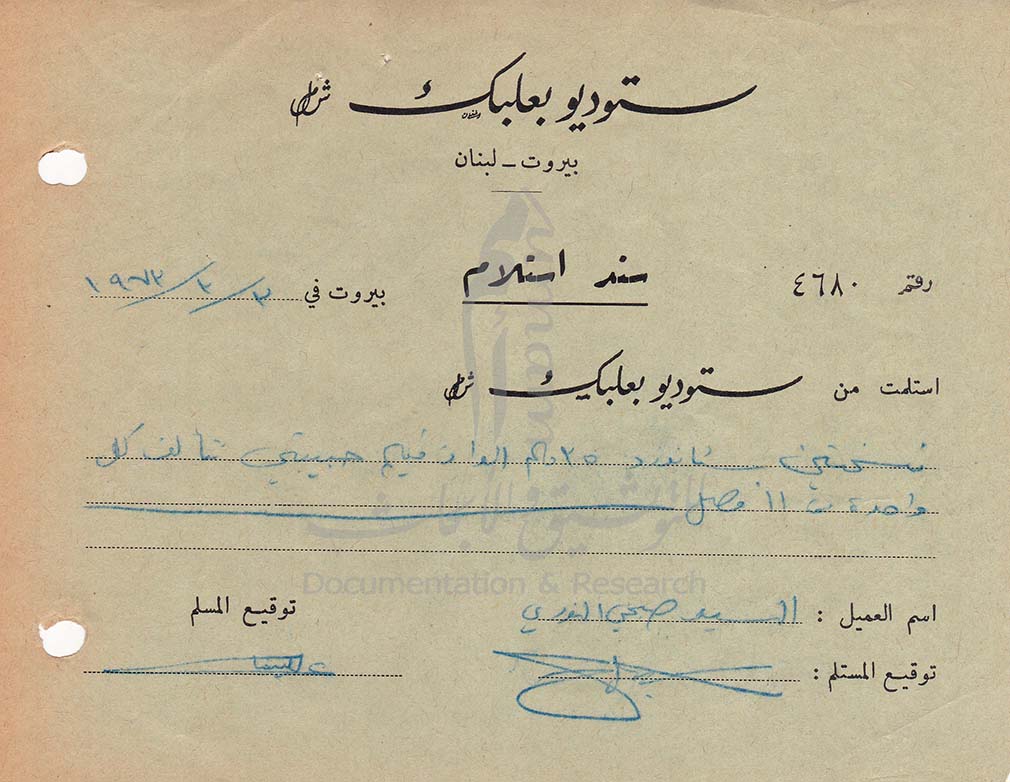 ستوديو بعلبك ش م ل
بيروت - لبنان
رقم ٤٦٨٠
سند استلام
بيروت في ٣ / ٣ / ١٩٧٣
استلمت من ستوديو بعلبك ش م ل
نسختين ستاندرد ٣٥ ملم الوان فيلم حبيبتي تتألف كل
واحدة من ١١ فصل
اسم العميل : السيد صبحي النوري
توقيع المسلم
توقيع المستلم :
للتوثيق والأبحاث
Documentation & Research